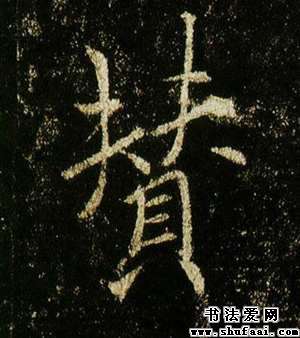 賛
书法爱网
www.shufaai.com